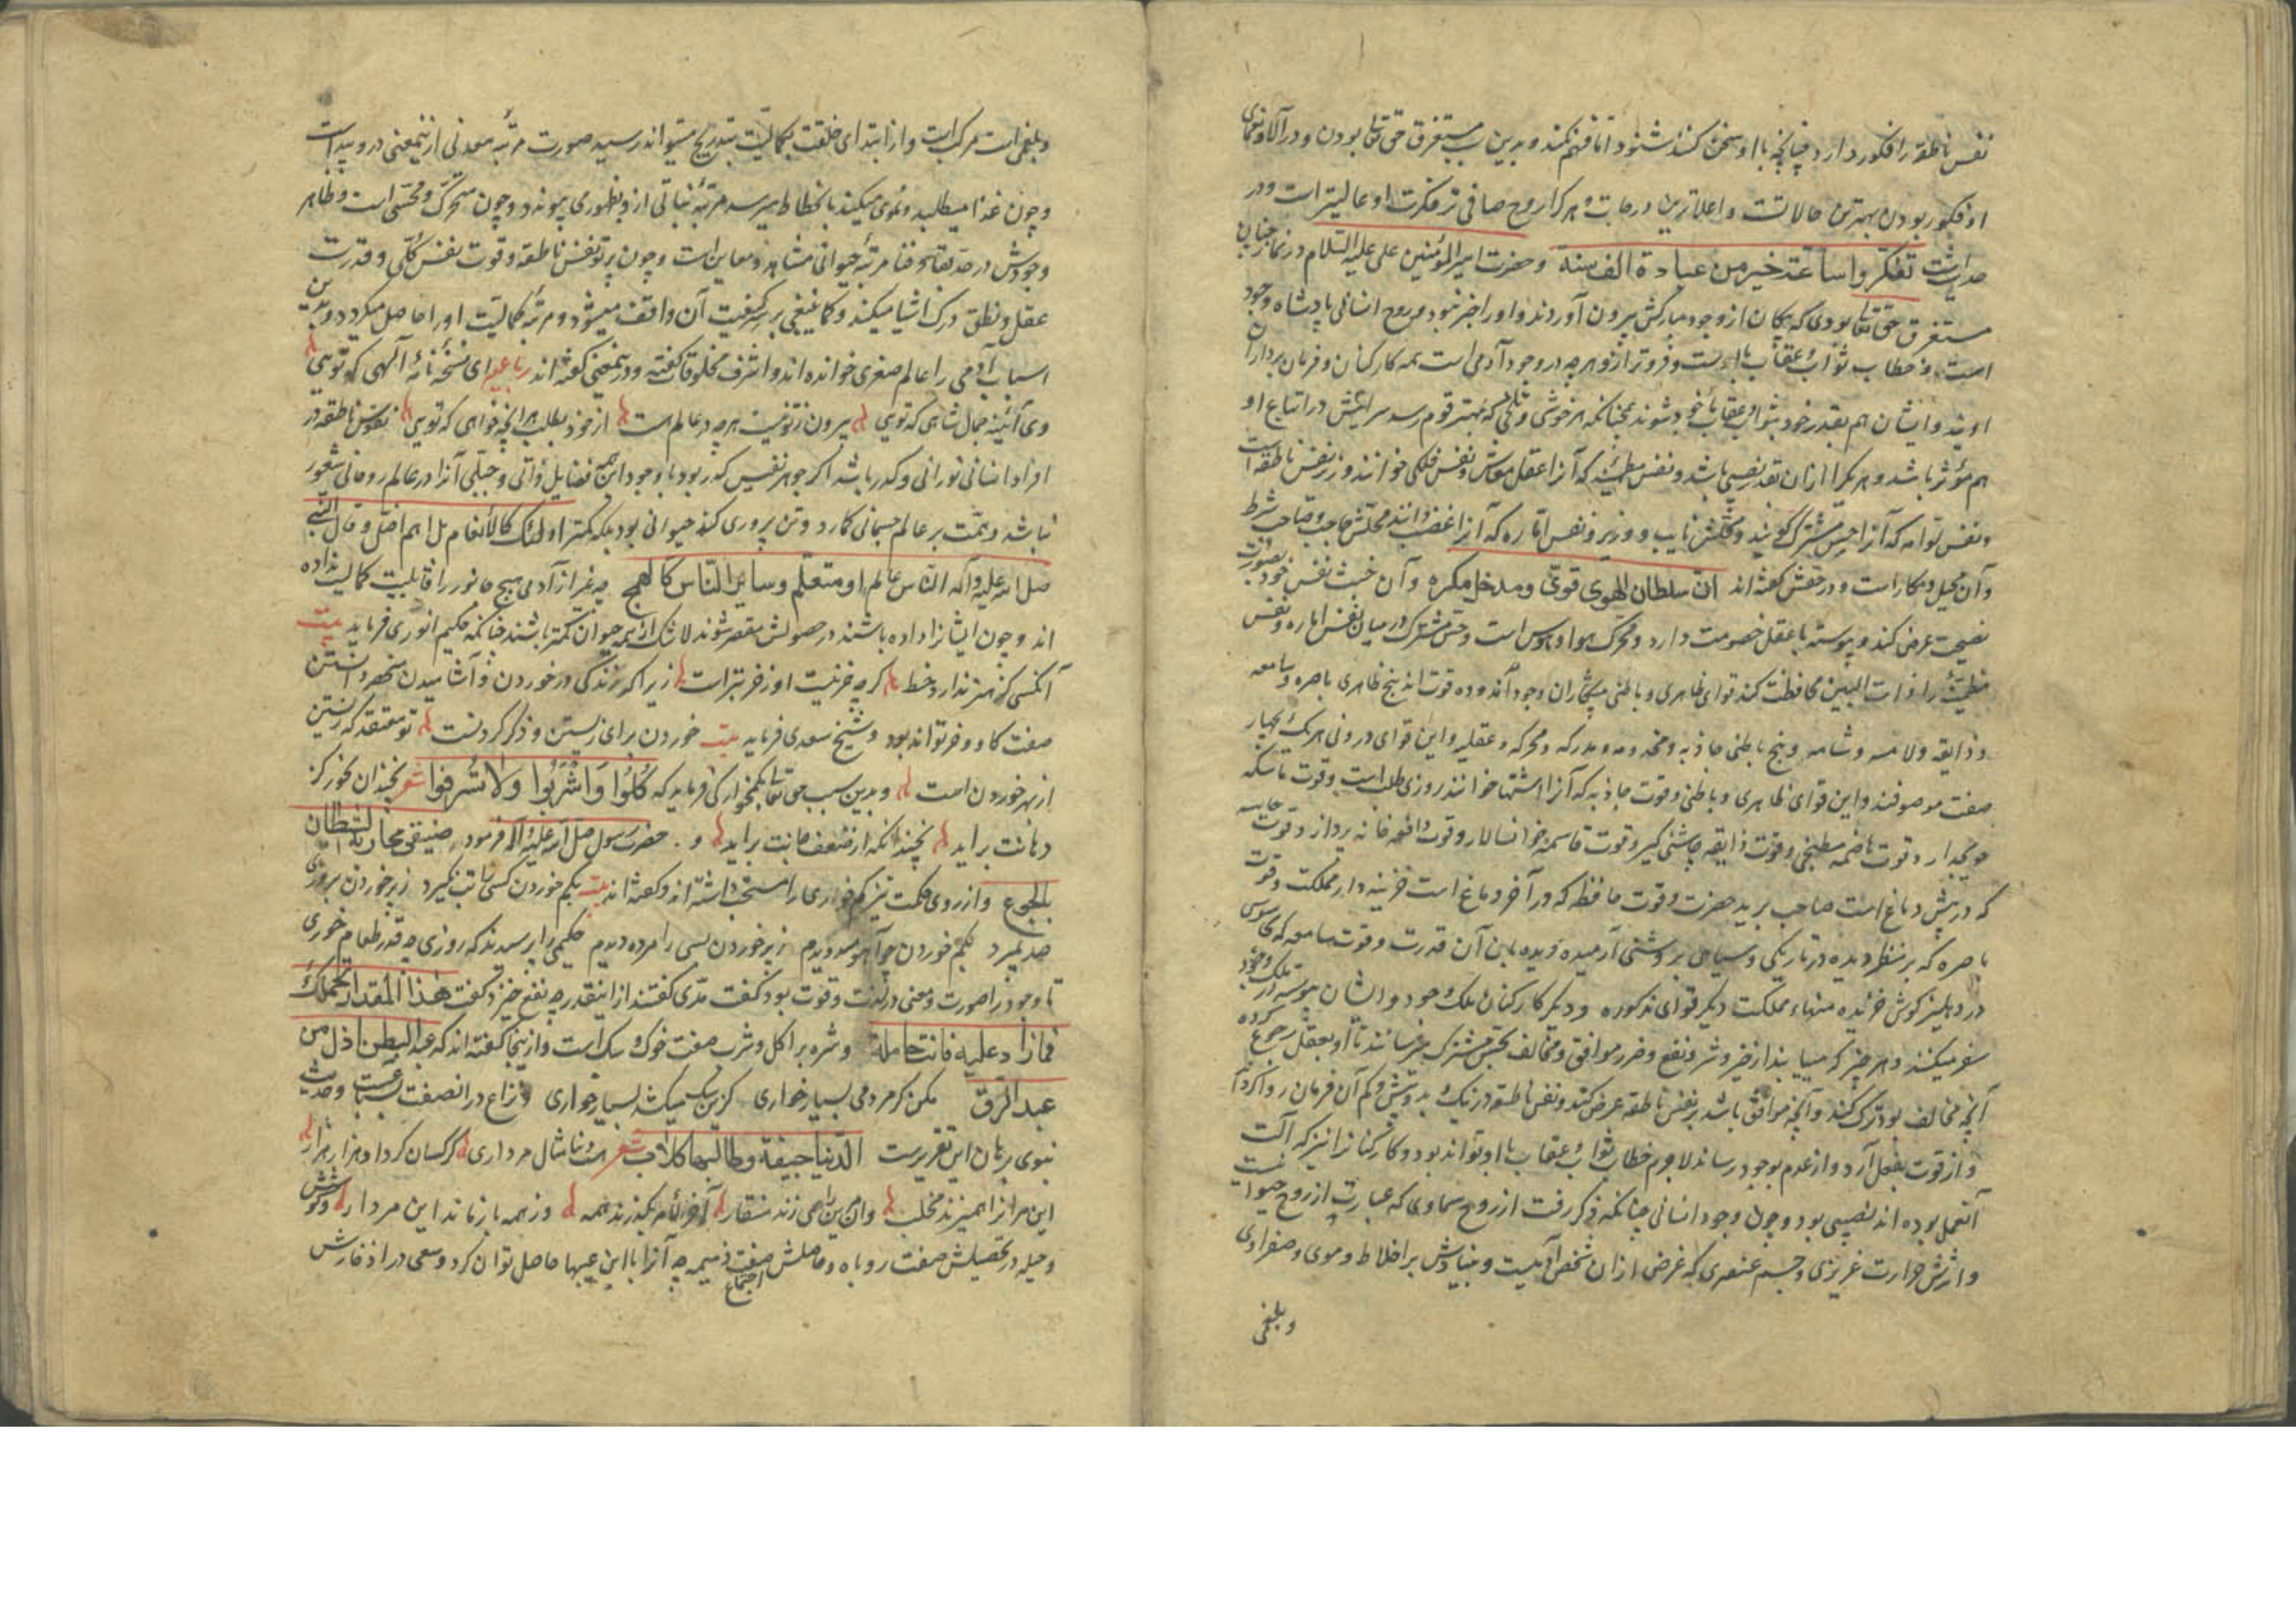 نفس ناطقه را فکور دارد چنانچه با او سخن کنند شنود اما فهم نکند و بدین سبب مستغرق حق تعالی بودن و در آلا و نعمای
او فکور بودن بهترین حالاتست و اعلاترین درجات و هر کرا روح صافی تر فکرت او عالیتر است و در
حدیث است تفکروا ساعة خیر من عبادة الف سنة و حضرت امیر المؤمنین علی علیه السلام در نماز چنان
مستغرق حق تعالی بودی که پیکان از وجود مبارکش بیرون آوردند و او را خبر نبود و روح انسانی پادشاه وجود
است و خطاب ثواب و عقاب با اوست و فروتر ازو هر چه در وجود آدمی است همه کارکنان و فرمان برداران
اویند و ایشان هم بقدر خود بثواب و عقاب مأخوذ شوند چنانکه هر خوشی و که بمهتر قوم رسد سرایتش در اتباع او
هم مؤثر باشد و هر یکرا ازان بقدر نصیبی باشد و نفس مطمئنه که آنرا عقل معاش و نفس فلکی خوانند وزیر نفس ناطقه است
و نفس لوامه که آنرا حس مشترک گویند و نایب و وزیر و نفس اماره که آنرا غضب دانند حاجب و صاحب شرط
و آن محیل و مکار است و در حقش گفته اند ان سلطان الهوی قوی و مدخل مکره و آن خبث نفس خود بصورت
نصیحت عرض کند و پیوسته با عقل خصومت دارد و محرک هوا و هوس است و حس مشترک در میان نفس اماره و نفس
مطمئنه را ذات البین محافظت کند قوای ظاهری و باطنی پیشکاران وجود اند و ده قوت اند پنج ظاهری باصره و سامعه
و ذایقه و لامسه و شامه و پنج باطنی جاذبه و و مدرکه و محرکه و عقلیه و این قوای درونی هر یک بچهار
صفت موصوفند و این قوای ظاهری و باطنی و قوت جاذبه که آنرا اشتها خوانند روزی طلب است و قوت ماسکه
و قوت هاضمه مطبخی و قوت ذایقه چاشنی گیر و قوت قاسمه خوانسالار و قوت دافعه خانه پرداز و قوت
که در پیش دماغ است صاحب برید حضرت و قوت حافظه که در آخر دماغ است خزینه دار مملکت و قوت
باصره که بر منظر دیده در تاریکی و سیاهی بر روشنی آرمیده دیده بان آن قدرت و قوت سامعه که جاسوسی
در دهلیز گوش خزیده منهاء مملکت دیگر قوای مذکوره و دیگر کارکنان ملک وجود و ایشان پیوسته در ملک وجود
سفر میکنند و هر چیز که مییابند از خیر و شر و نفع و ضرر موافق و مخالف بحس مشترک میرسانند تا او بعقل رجوع کرده
آنچه مخالف بود ترک کند و آنچه موافق باشد بر نفس ناطقه عرض کند و نفس ناطقه در نیک و بد و بیش و کم آن فرمان روا گردد
و از قوت بفعل آرد و از عدم بوجود رساند لاجرم خطاب ثواب و عقاب با او تواند بود و کارکنانرا نیز که آلت
آنعمل بوده اند نصیبی بود و چون وجود انسانی چنانکه ذکر رفت از روح سماوی که عبارت از روح حیوانیست
و اثرش حرارت غریزی و جسم عنصری که غرض ازان شخص آدمیست و بنیادش بر اخلاط دموی و صفراوی
و بلغمی
و بلغمی است مرکب است و از ابتدای خلقت بکمالیت بتدریج میتواند رسید صورت مرتبه معدنی ازینمعنی درو پیداست
و چون غذا میطلبد و نموی میکند بانحطاط میرسد مرتبه نباتی ازو بظهور می پیوندد و چون متحرک و محسی است و ظاهر
وجودش در صدد بقا و فنا مرتبه حیوانی مشاهد و معاین است و چون پرتو نفس ناطقه و قوت نفس کلی و قدرت
عقل و نطق درک اشیا میکند و کما ینبغی بر کیفیت آن واقف میشود مرتبه کمالیت او را حاصل میگردد و بدین
اسباب آدمی را عالم صغری خوانده اند و اشرف مخلوقات گفته و درینمعنی گفته اند رباعیه ای نسخه نامه الهی که تویی
وی آئینه جمال شاهی که تویی بیرون ز تو نیست هر چه در عالم هست از خود بطلب هر آنچه خواهی که تویی نفوس ناطقه در
افراد انسانی نورانی و مکدر باشد اگر جوهر نفیس که بود با وجود این همه فضایل ذاتی و جبلی آنرا در عالم روحانی شعور
نباشد و همت بر عالم جسمانی گمارد و تن پروری کند حیوانی بود بلکه کمتر اولئک کالأنعام بل هم اضل و قال النبی
صلی الله علیه و آله الناس عالم او متعلم و سایر الناس کالهمج چه غیر از آدمی هیچ جانور را قابلیت کمالیت نداده
اند و چون ایشانرا داده باشند در حصولش مقصر شوند لاشک از حیوان کمتر باشند چنانکه حکیم انوری فرماید بیت
آنکس که هنر ندارد و خط گرچه خر نیست او ز خر بتر است زیرا که زندگی در خوردن و آشامیدن منحصر دانستن
صفت گاو و خر تواند بود و شیخ سعدی فرماید بیت خوردن برای زیستن و ذکر کردنست تو معتقد که زیستن
از بهر خوردن است و بدین سبب حق تعالی بکمخوارگی فرماید که کُلُوا وَاشْرَبُوا وَلَا تُسْرِفُوا شعر نچندان بخور کز
دهانت براید نچندانکه از ضعف جانت براید و حضرت رسول صلی الله علیه و آله فرمود ضیقی مجاری الشیطان
بالجوع و از روی حکمت نیز کم خواری را مستحب داشته اند و گفته اند بیت بکم خوردن کسی را تب نگیرد ز پر خوردن بروزی
صد بمیرد حکیمی را پرسیدند که روزی چه قدر طعام خوری
تا وجود را صورت و معنی در لذت و قوت بود گفت مدی گفتند ازاینقدر چه نفع خیزد گفت هذا المقدار یحملک
فمازاد علیه فانت حامله و شره بر اکل و شرب صفت خوک و سگ است و ازینجا گفته اند که عبد البطن اذل من
عبد الرق مکن گر مردمی بسیار خواری کزین سگ میکشد بسیار خواری و نزاع در انصفت سباعست و حدیث
نبوی برهان این تقریرست الدنیا جیفة و طالبها کلاب شعر دنیا مثال مرداری کرکسان گرد او هزار هزار
این مرانرا همیزند مخلب وان مرین را همی زند منقار آخر الامر بگذرند همه وز همه باز ماند این مردار و کوشش
و حیله در تحصیلش صفت روباه و حاصلش صفت ذمیمه چه آنرا با این عیبها حاصل توان کرد و سعی در اذخارش
اجتماع